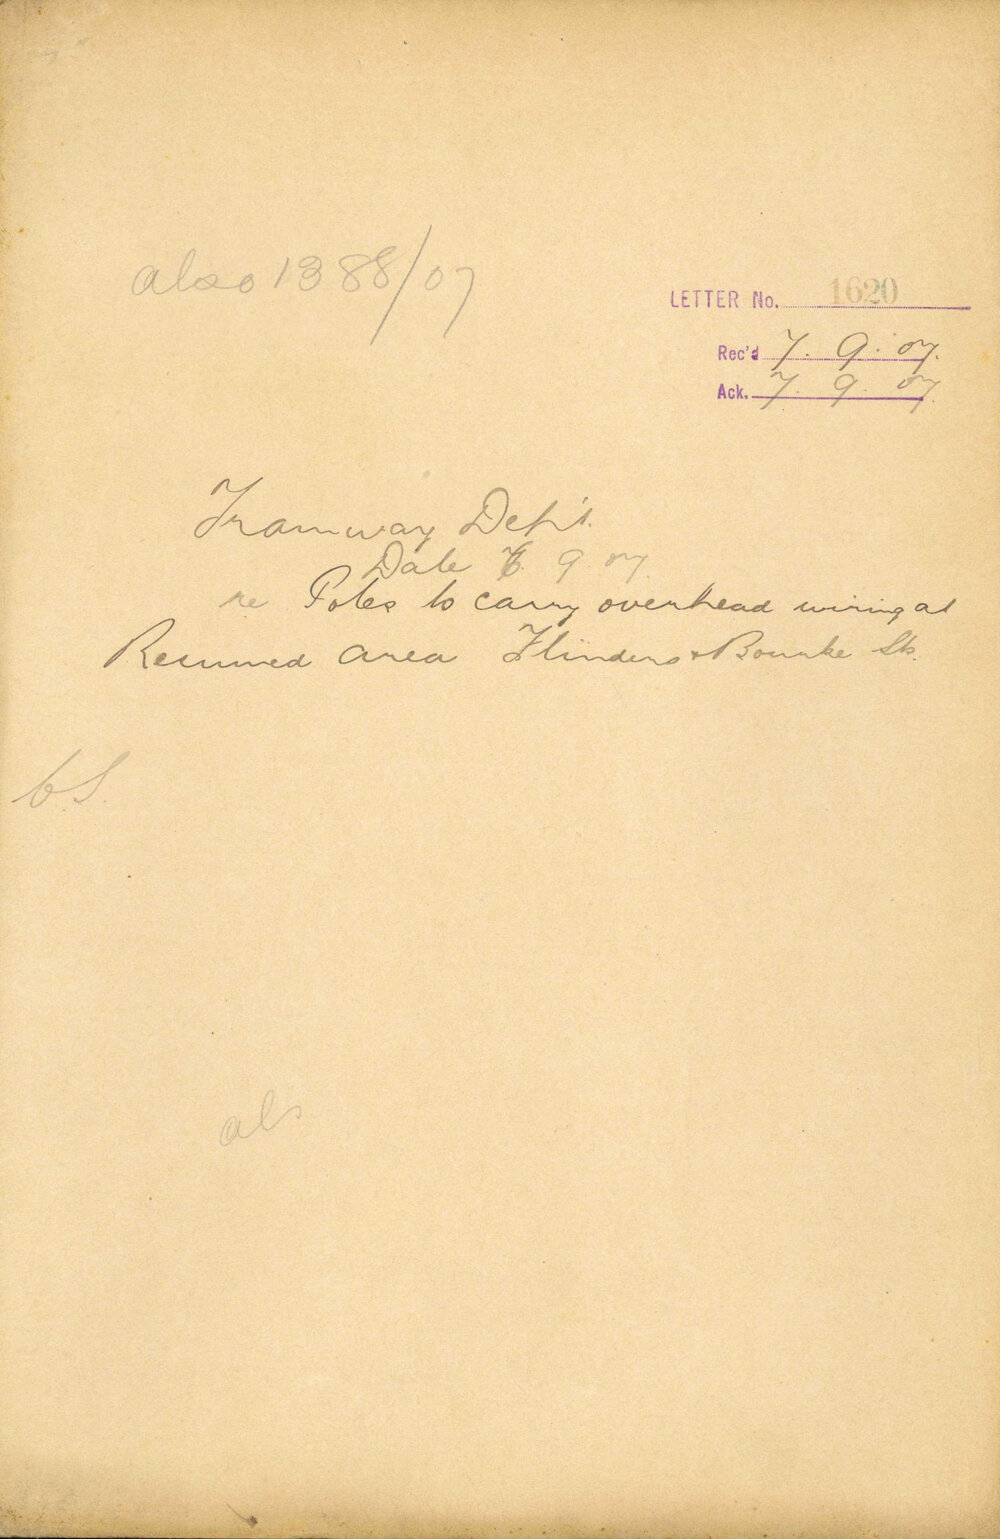 also 1388/07
LETTER No. 1620
Rec'd 7. 9. 07.
Ack. 7. 9. 07.
Tramway Dep't.
Date 6. 9. 07
re Poles to carry overhead wiring at
Resumed area Flinders & Bourke Sts.
als